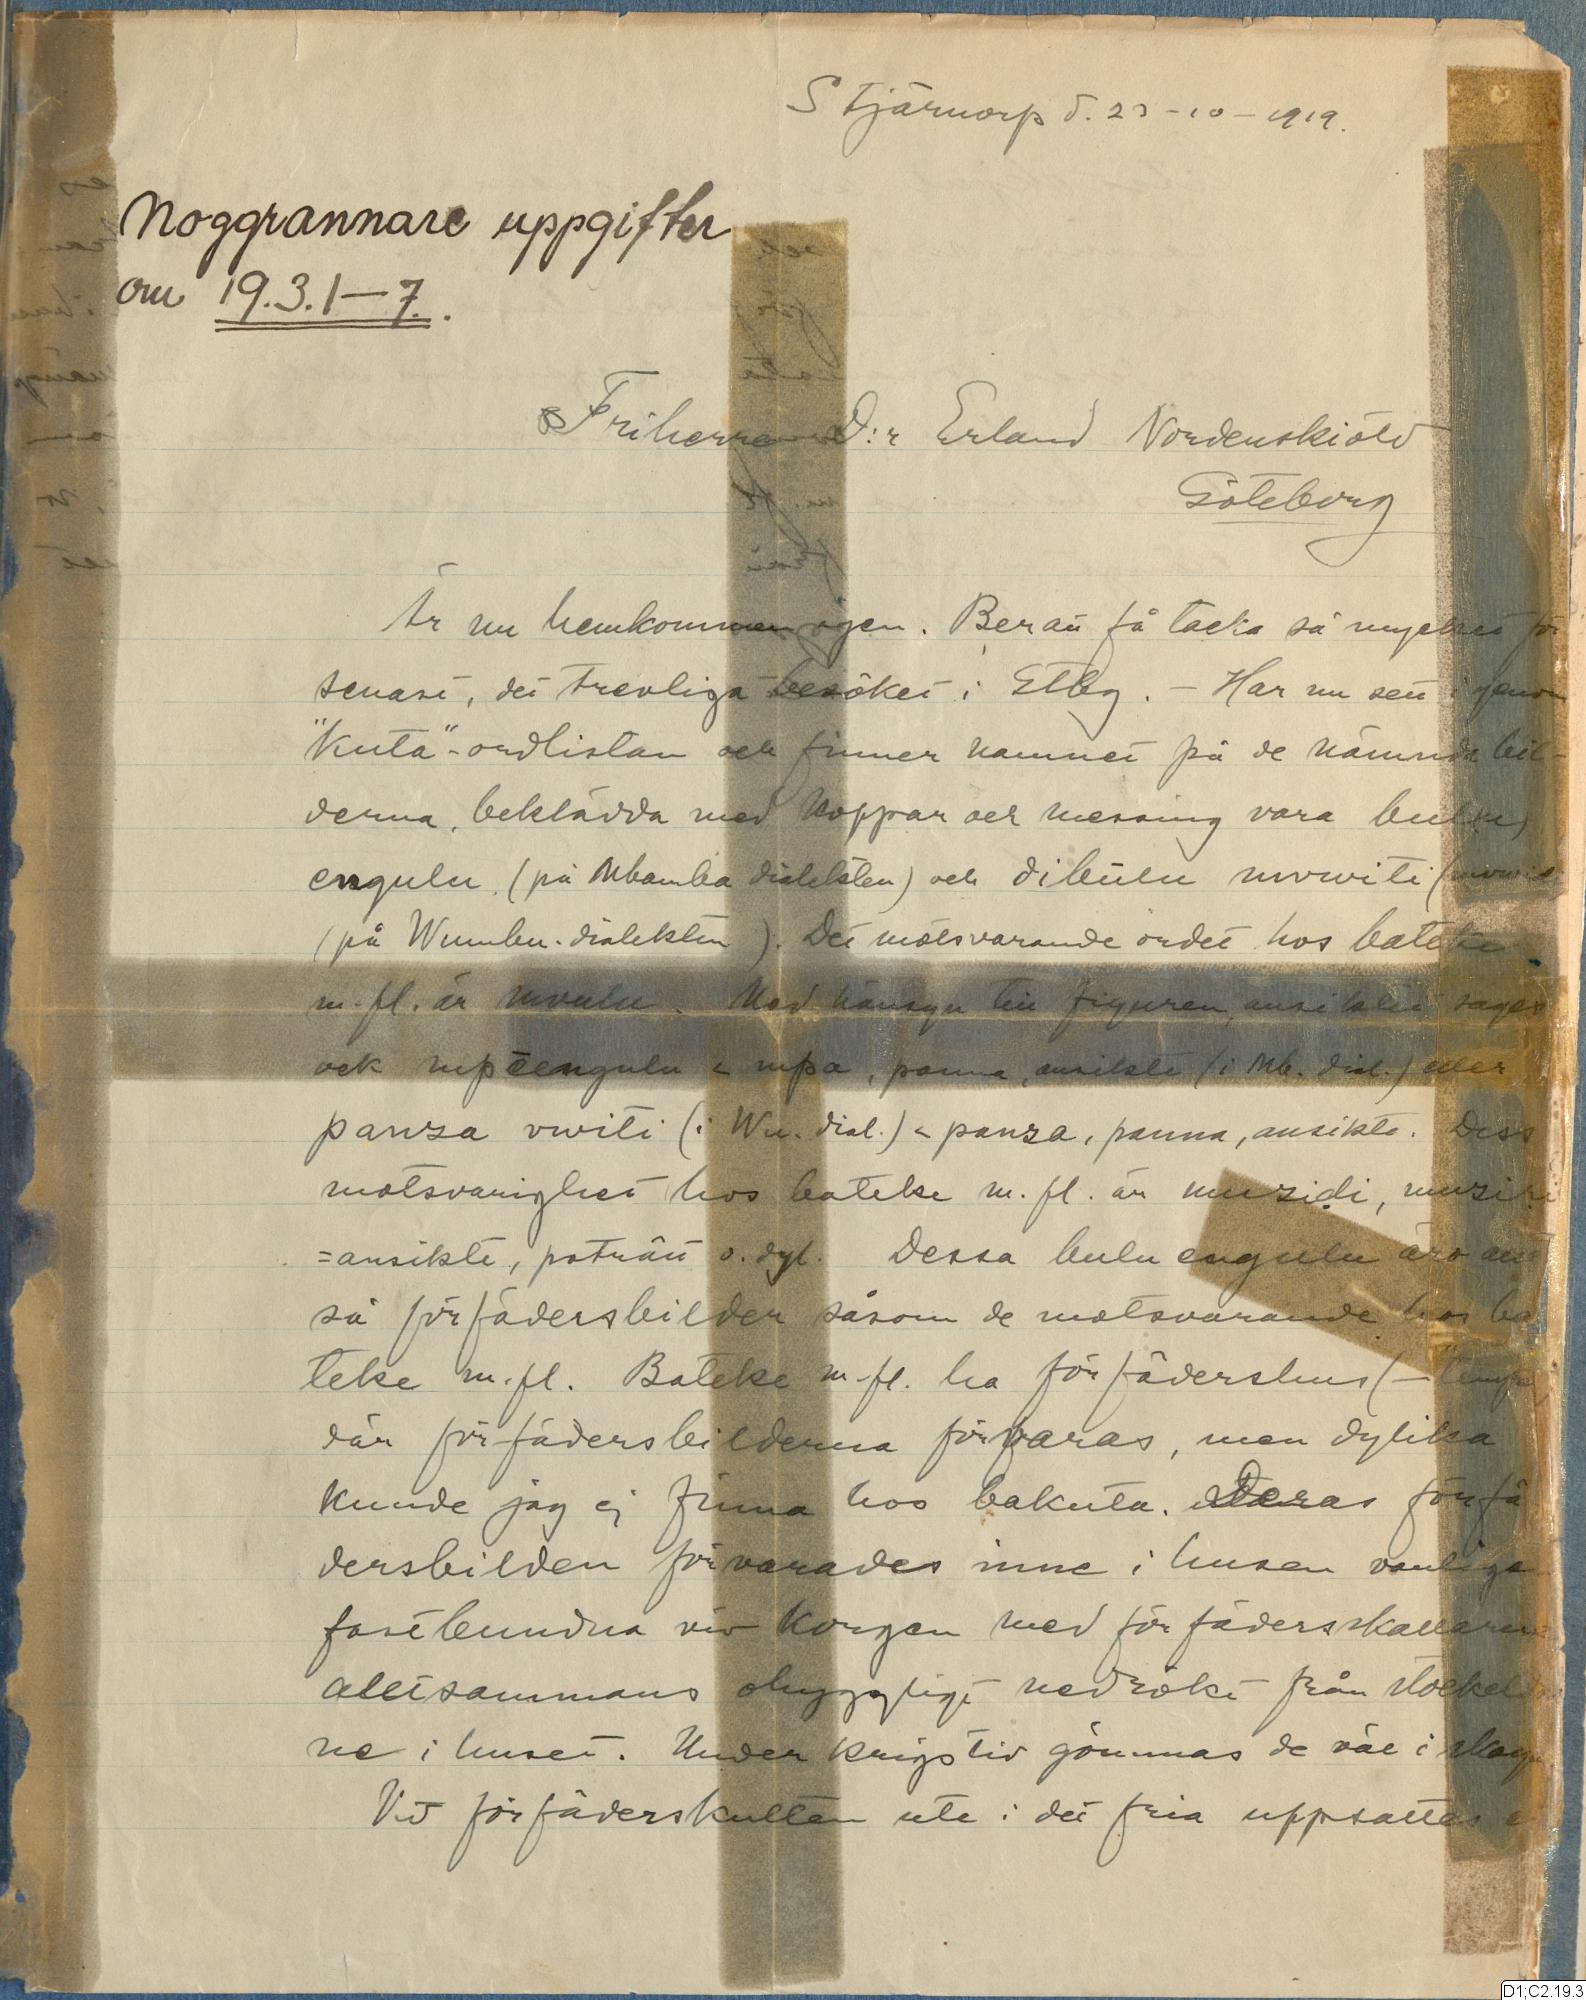 Stjärnorp d. 23-10-1919.
Noggrannare uppgifter
om 19.3.1—7.
Friherre D:r Erland Nordenskiöld
Göteborg
Är nu hemkommen igen. Ber att få tacka så mycket för
senast, det trevliga besöket i Gtbg. — Har nu sett igenom
"Kuta"-ordlistan och finner namnet på de nämnda bil-
derna, beklädda med koppar och messing vara bulu
engulu (på Mbamba dialekten) och dibulu mvwiti
(på Wumbu-dialekten). Det motsvarande ordet hos bateke
m.fl. är Med hänsyn till figuren, ansiktet sages
ock mpoengulu < mpa, panna, ansikte (i Mb. dial.) eller
panza vwiti (i Wu. dial.) < panza, panna, ansikte. Dess
motsvarighet hos bateke m.fl. är muzidi,
=ansikte, poträtt o. dyl. Dessa bulu engulu äro allt
så förfädersbilder såsom de motsvarande hos ba
teke m.fl. Bateke m.fl. ha förfädershus (–tempel
där förfädersbilderna förvaras, men dylika
kunde jag ej finna hos bakuta. Deras förfä
dersbilden förvarades inne i husen vanliga
fastbundna vid korgen med förfädersskallarne
alltsammans ohyggligt nedrökt från stockeldar
ne i huset. Under krigstid gömmas de väl i skogen
Vid förfäderskulten ute i det fria uppsattes
D1;C2.19.3